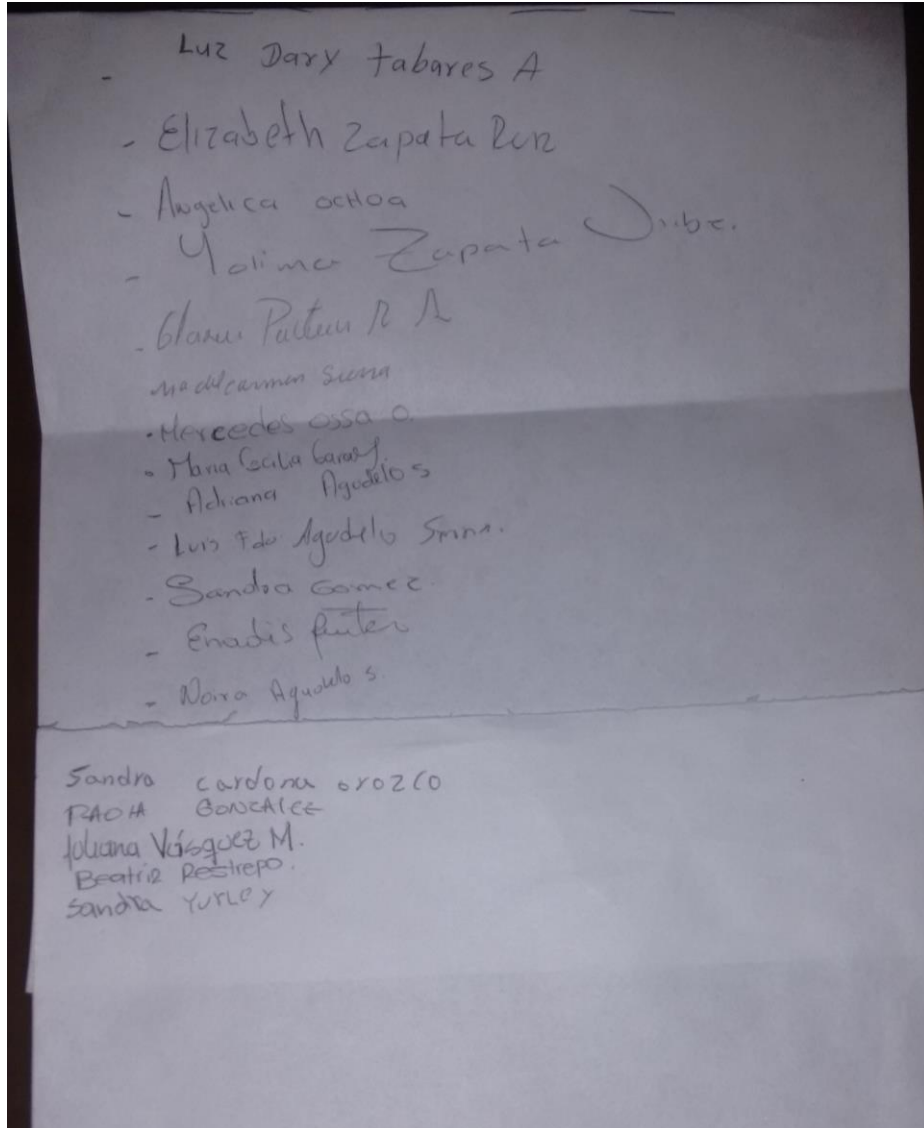 - Luz Dary tabares A
- Elizabeth Zapata
- Angelica ocHoa
- Yolima Zapata Uribe.
- R A
Ma del carmen Sierra
- Mercedes ossa O.
- Maria Cecilia Garay
- Adriana Agudelo S
- Luis Fdo Agudelo
- Sandra Gomez
- Enadis
- Agudelo S.
Sandra cardona orozco
PAOlA GONZAlEz
Juliana Vásquez M.
Beatriz Restrepo.
Sandra YurLey